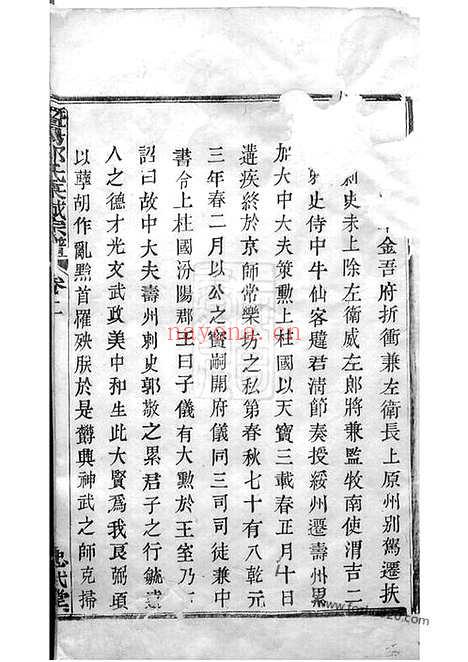 金吾府折衝兼左衛長上原州别駕遷扶
刺史未上除左衛威左郎將兼監牧南使渭吉二
刺史侍中牛仙客韙君清節奏授綏州遷壽州累
加大中大夫策勲上柱國以天寶三載春正月十日
遺疾終於京師常樂坊之私第春秋七十有八乾元
三年春二月以公之寳嗣開府儀同三司司徒兼中
書令上柱國汾陽郡王曰子儀有大勲於王室乃
詔曰故中大夫壽州刺史郭敬之累君子之行毓達
人之德才光文武政美中和生此大賢爲我良弼頃
以孽胡作亂黔首罹殃朕於是欝興神武之師克掃
宗譜 卷二
忠武堂
nayona.cn